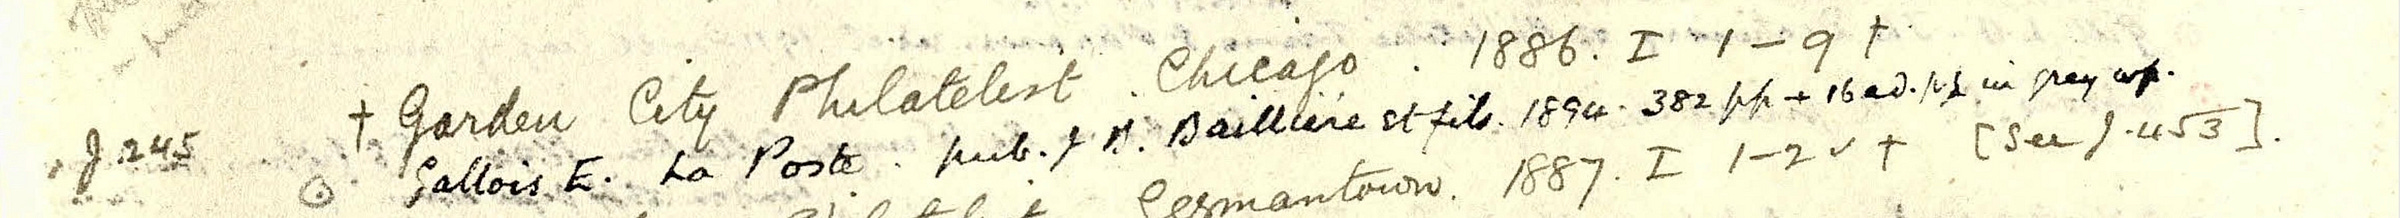 † Garden City Philatelist. Chicago. 1886. I 1-9 †
J.245 Gallois E. La Poste. pub. J B. Bailliére et fils. 1894. 382 pp + 16 ad. pp in grey wp.
Germantown. 1887. I 1-2 v † [See J.453].